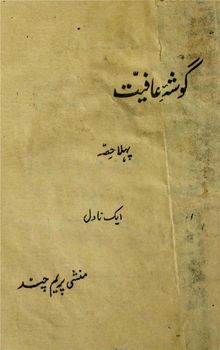 گوشۂ عافیت
پہلا حصہ
ایک ناول
منشی پریم چند